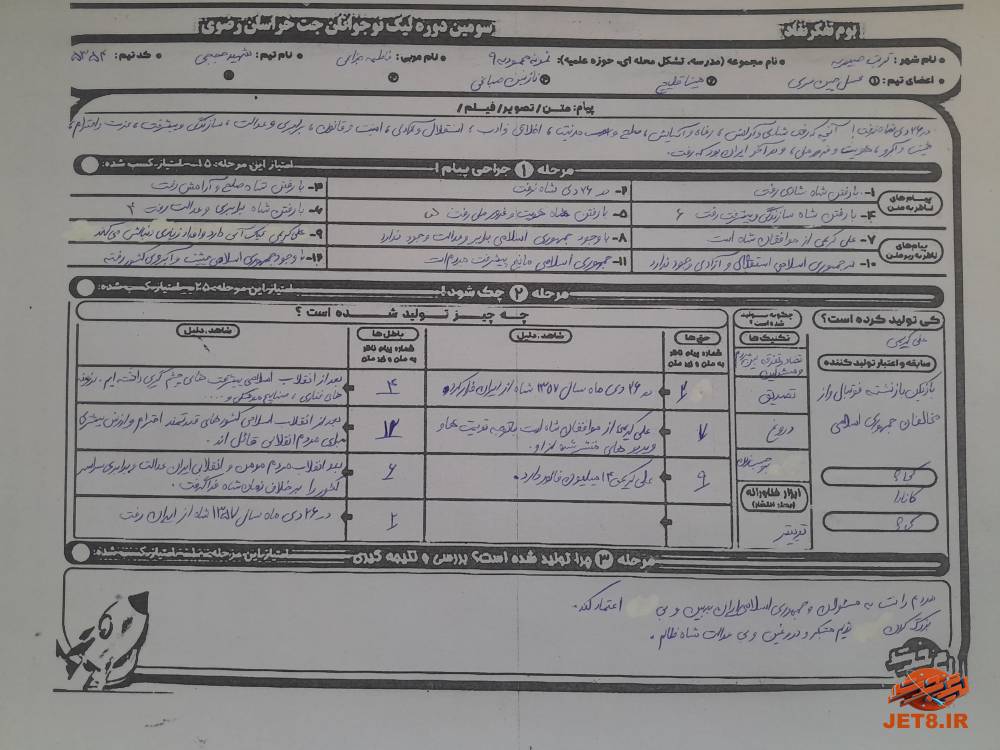 بوم تفکر نقاد
سومین دوره لیگ نوجوانان جت خراسان رضوی
نام شهر: تربت حیدریه نام مجموعه (مدرسه، تشکل محله ای، حوزه علمیه): نمونه محمودیه ۹ نام مربی: فاطمه خزاعی نام تیم: شهید حججی کد تیم: ۵۳۵۴
اعضای تیم: ۱ عسل ۲ ۳ نازنین صباغی
پیام: متن / تصویر / فیلم /
در ۲۶ دی شاه نرفت! آنچه که رفت شادی و آرامش، رفاه و آسایش، صلح و مدنیت، اخلاق و ادب، استقلال و آزادی، امنیت و قانون، برابری و عدالت، سازندگی و پیشرفت، عزت و احترام،
و آبرو، هویت و غرور ملی، و در آخر ایران بود که رفت.
مرحله ۱ جراحی پیام! امتیاز این مرحله: ۱۵ امتیاز کسب شده:
پیام های ناظر به متن
۱- با رفتن شاه شادی رفت
۲- در ۲۶ دی شاه نرفت
۳- با رفتن شاه صلح و آرامش رفت
۴- با رفتن شاه سازندگی و پیشرفت رفت ۶
۵- با رفتن شاه هویت و غرور ملی رفت
۶- با رفتن شاه برابری و عدالت رفت ۴
پیام های ناظر به زیر متن
۷- علی کریمی از موافقان شاه است
۸- با وجود جمهوری اسلامی برابری و عدالت وجود ندارد
۹- علی کریمی تیک آبی دارد و افراد زیادی دنبالش می کنند
۱۰- در جمهوری اسلامی استقلال و آزادی وجود ندارد
۱۱- جمهوری اسلامی مانع پیشرفت مردم است
۱۲- با وجود جمهوری اسلامی عزت و آبروی کشور رفت
مرحله ۲ چک شود! امتیاز این مرحله: ۲۵ امتیاز کسب شده:
کی تولید کرده است؟
علی کریمی
سابقه و اعتبار تولید کننده
بازیکن بازنشته فوتبال و از
مخالفان جمهوری اسلامی
کجا؟
کانادا
کی؟
چگونه تولید شده است؟
تکنیک ها
تصدیق
دروغ
ابزار فناورانه
(بستر انتشار)
توییتر
چه چیز تولید شده است؟
حق ها
شماره پیام ناظر به متن و زیر متن
شاهد، دلیل
باطل ها
شماره پیام ناظر به متن و زیر متن
شاهد، دلیل
۲ در ۲۶ دی ماه سال ۱۳۵۷ شاه از ایران فرار کرد.
۷ علی کریمی از موافقان شاه است باتوجه توییت ها و
ویدیو های منتشر شده از او.
۹ علی کریمی ۱۴ میلیون فالور دارد.
۴ بعد از انقلاب اسلامی پیشرفت های چشم گیری داشته ایم.
های فضایی، صنایع موشکی و ....
۱۲ بعد از انقلاب اسلامی کشورهای قدرتمند احترام و ارزش بیشتری
برای مردم انقلابی قائل اند.
۶ بعد انقلاب مردم مومن و انقلابی ایران عدالت و برابری سراسر
کشور را بر خلاف زمان شاه فرا گرفت.
۲ در ۲۶ دی ماه سال ۱۳۵۷ شاه از ایران رفت
مرحله ۳ چرا تولید شده است؟ بررسی و نتیجه گیری امتیاز این مرحله: امتیاز کسب شده:
مردم را نسبت به مسئولان و جمهوری اسلامی ایران بدبین و بی اعتماد کند.
بزرگ کردن رژیم ستمگر و دروغین و بی عدالت شاه ظالم.
JET8.IR